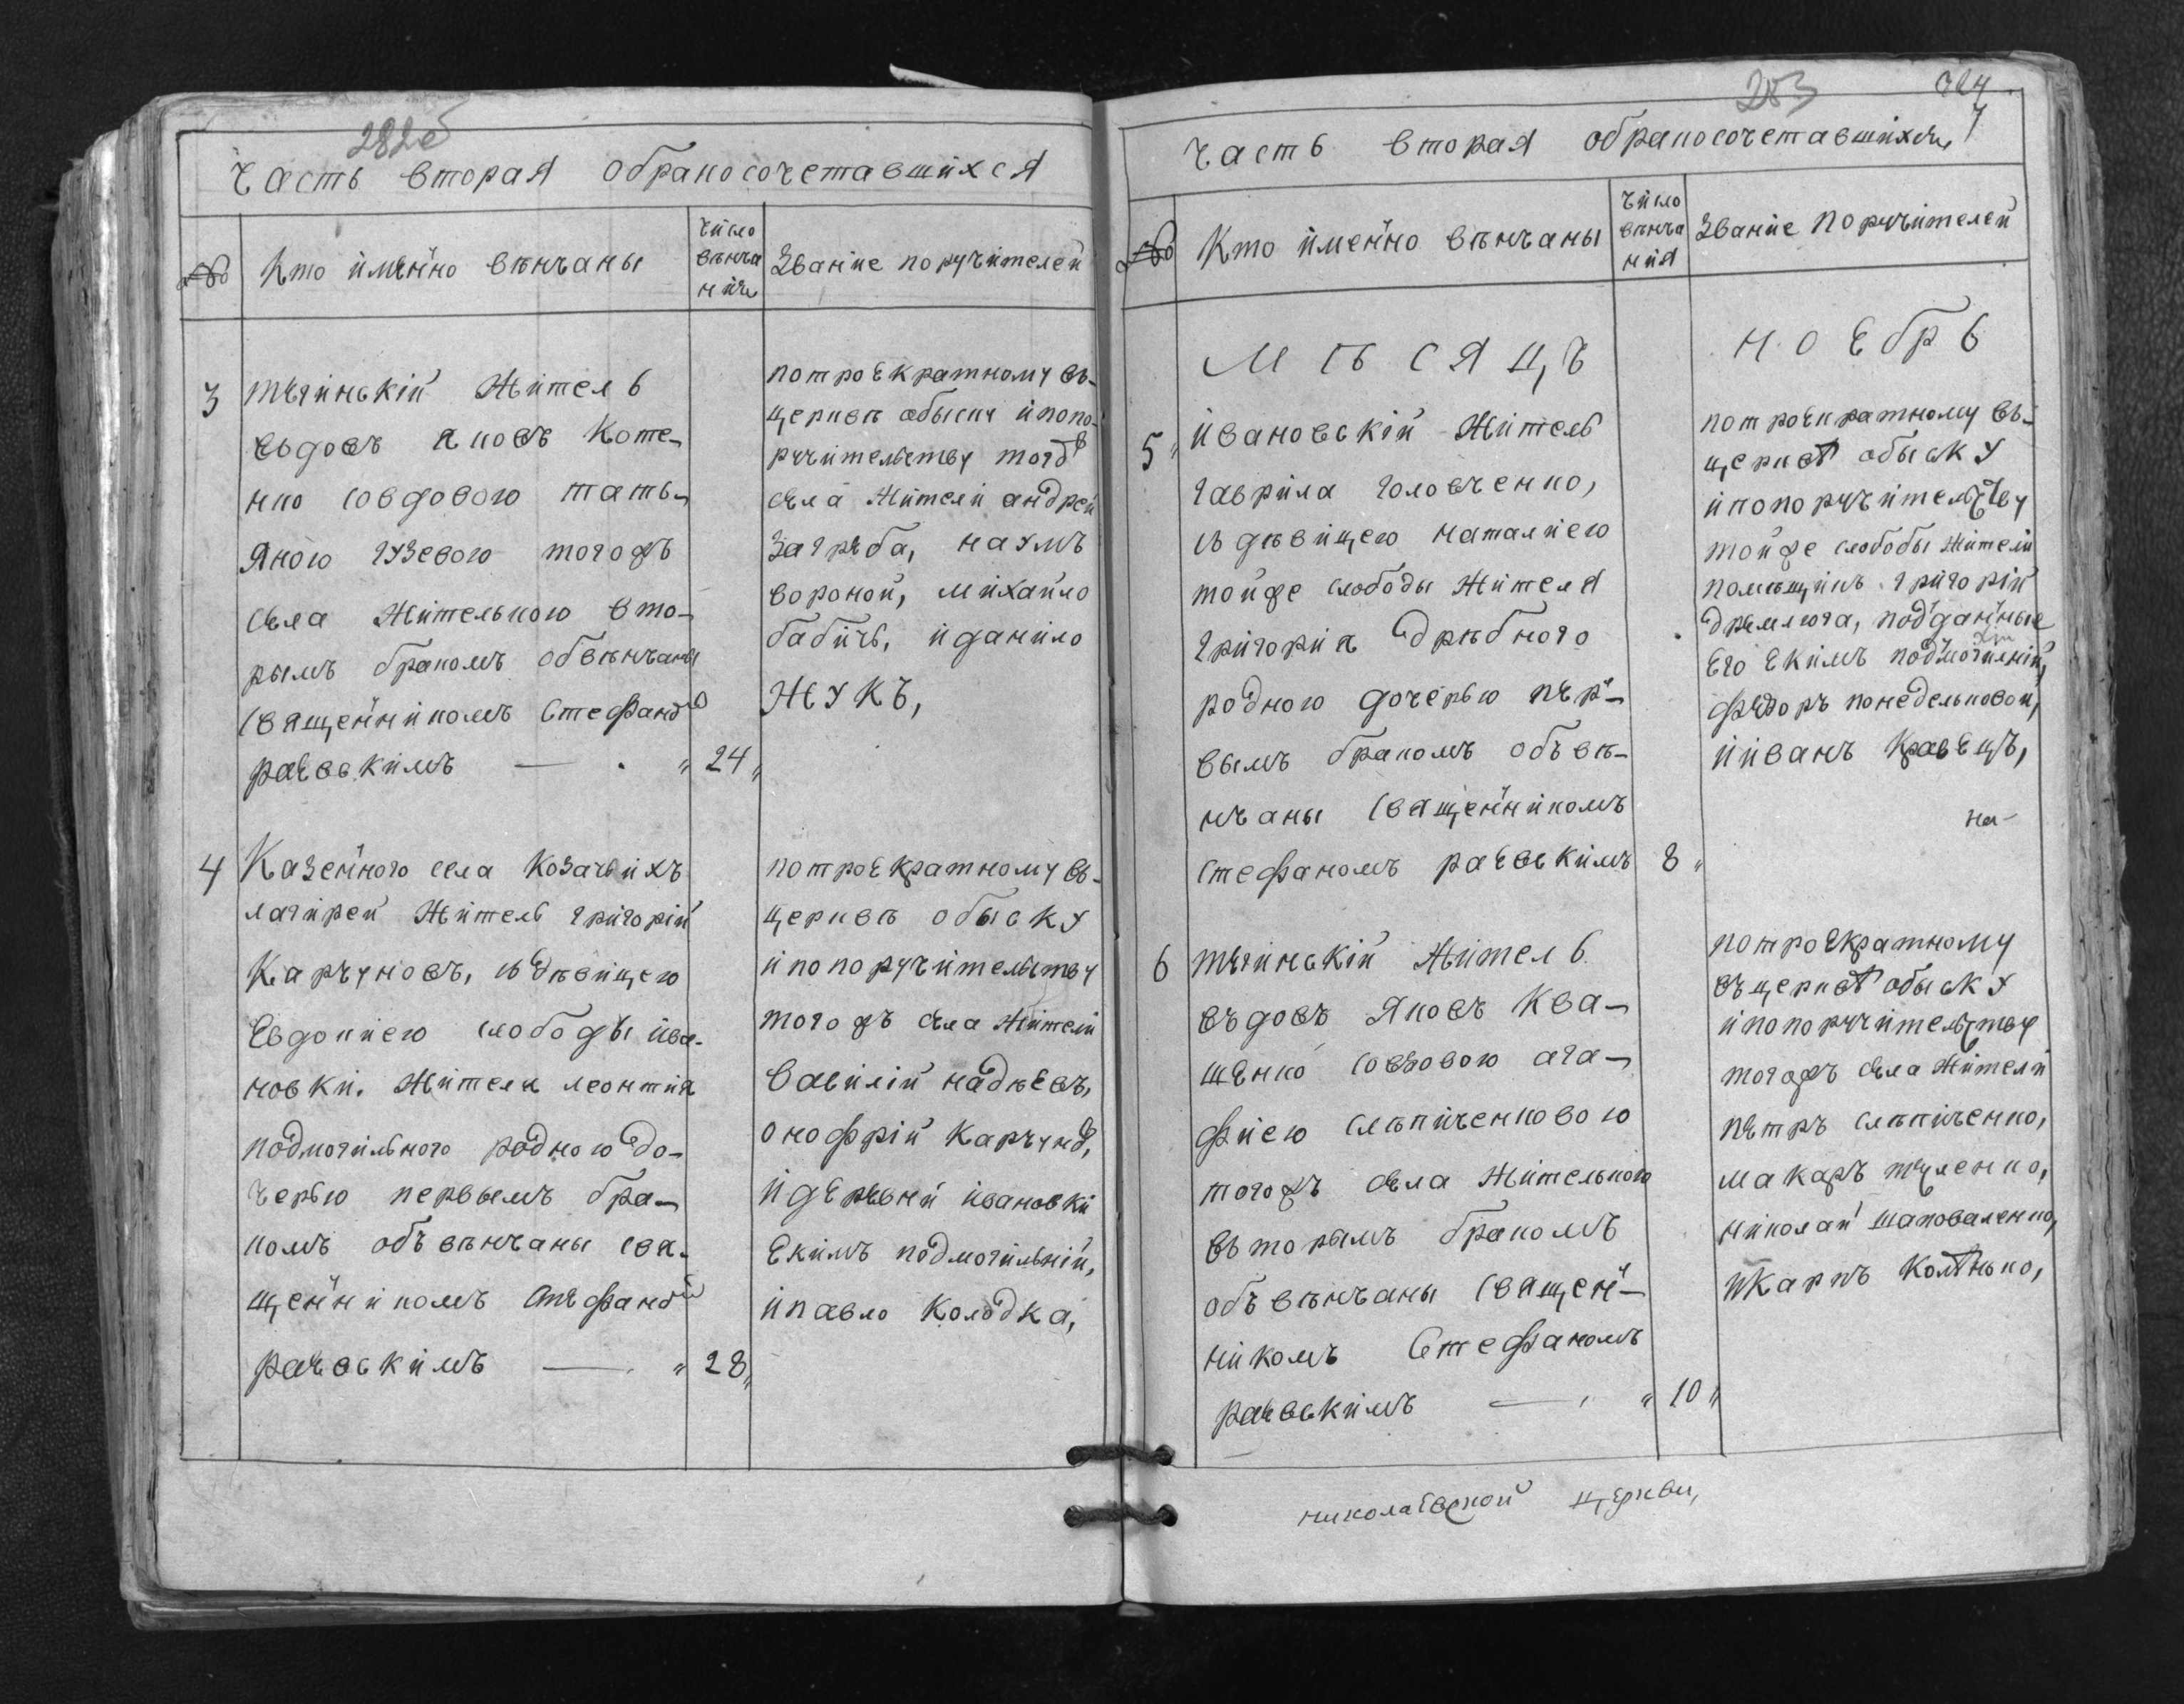 282
Часть вторая обракосочетавшихся
№ Кто именно венчаны
число венча ния
Звание поручителей
3
тягинский Жител ь
вьдовъ яковъ Коте-
нко совдовою тать-
яною гузевою тогожъ
села Жителькою вто-
рымъ бракомъ обвенчаны
священникомъ Стефаном
раевскимъ — „ 24 „
потроекратному вь-
церкве обыску ипопо-
ручительству тогож
села Жители андрей
Загреба, наумъ
вороной, михайло
бабичь, иданило
Жукъ,
4
Казенного села Козачьихъ
лагирей Житель григорий
Карчуновъ, сьдевицею
Евдокиею слободы ива-
новки. Жителя леонтия
подмогильного родною до-
черью первымъ бра-
комъ объвенчаны свя-
щенникомъ Стефаном
раевскимъ — „ 28 „
потроекратному вь-
церкве обыску
ипопоручительству
тогожъ села Жители
Савилий надѣевъ,
онофрий Карчунов,
идеревни ивановки
Екимъ подмогильний,
ипавло Колодка,
283
7
Часть вторая обракосочетавшихся
№ Кто именно венчаны
число венча ния
Звание поручителей
МѢСЯЦЪ НОЕбРЬ
5 „
ивановский Житель
гаврила головченко,
сьдевицею наталиею
тойже слободы Жителя
григория дребного
родною дочерью пер-
вымъ бракомъ объве-
нчаны священникомъ
стефаномъ раевскимъ 8 „
потроекратному вь-
церкве обыску
ипопоручительству
тойже слободы Жители
помещикъ григорий
дремлюга, подданные
Его Екимъ подмогильний,
федоръ понедельковой,
ииванъ Кравецъ,
на-
6
тягинский Жител ь
въдовъ Яковъ Ква-
шенко совдовою ага-
фиею слепиченковою
тогожъ села Жителькою
вьторымъ бракомъ
объвенчаны священ-
никомъ Стефаномъ
раевскимъ — „ 10 „
потроекратному
въцеркве обыску
ипопоручительству
тогожъ села Жители
петръ слепиченко,
макаръ
николай шаповаленко,
икарпъ
николаевской церкви,